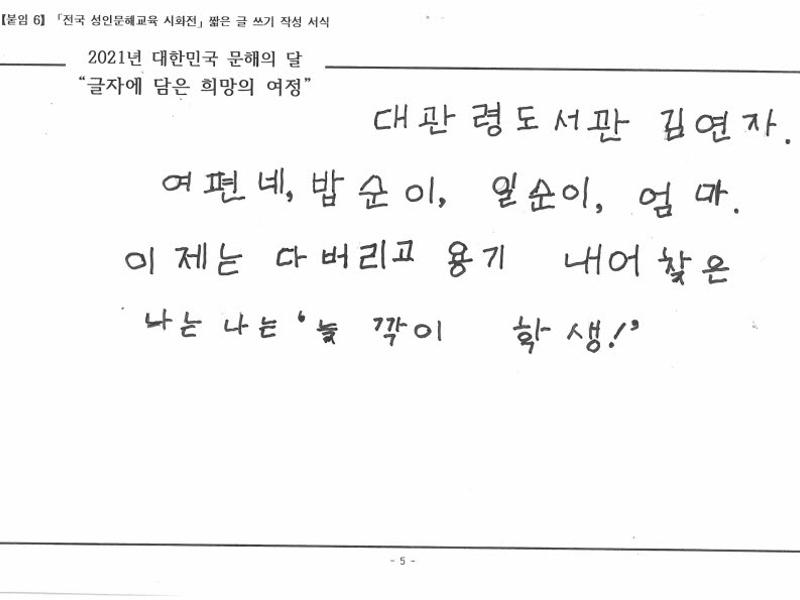 【붙임 6】 「전국 성인문해교육 시화전」 짧은 글 쓰기 작성 서식
2021년 대한민국 문해의 달
“글자에 담은 희망의 여정”
대관령도서관 김연자.
여편네, 밥순이, 일순이, 엄마.
이제는 다버리고 용기 내어 찾은
나는 나는 ‘늦깍이 학생!’
- 5 -